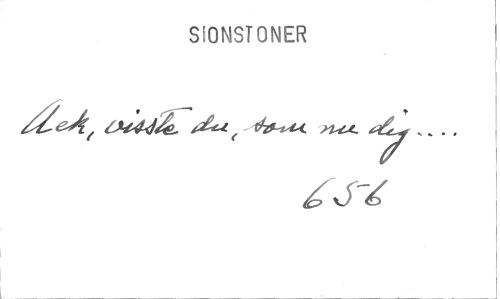 SIONSTONER
Ack, visste du, som nu dig....
656